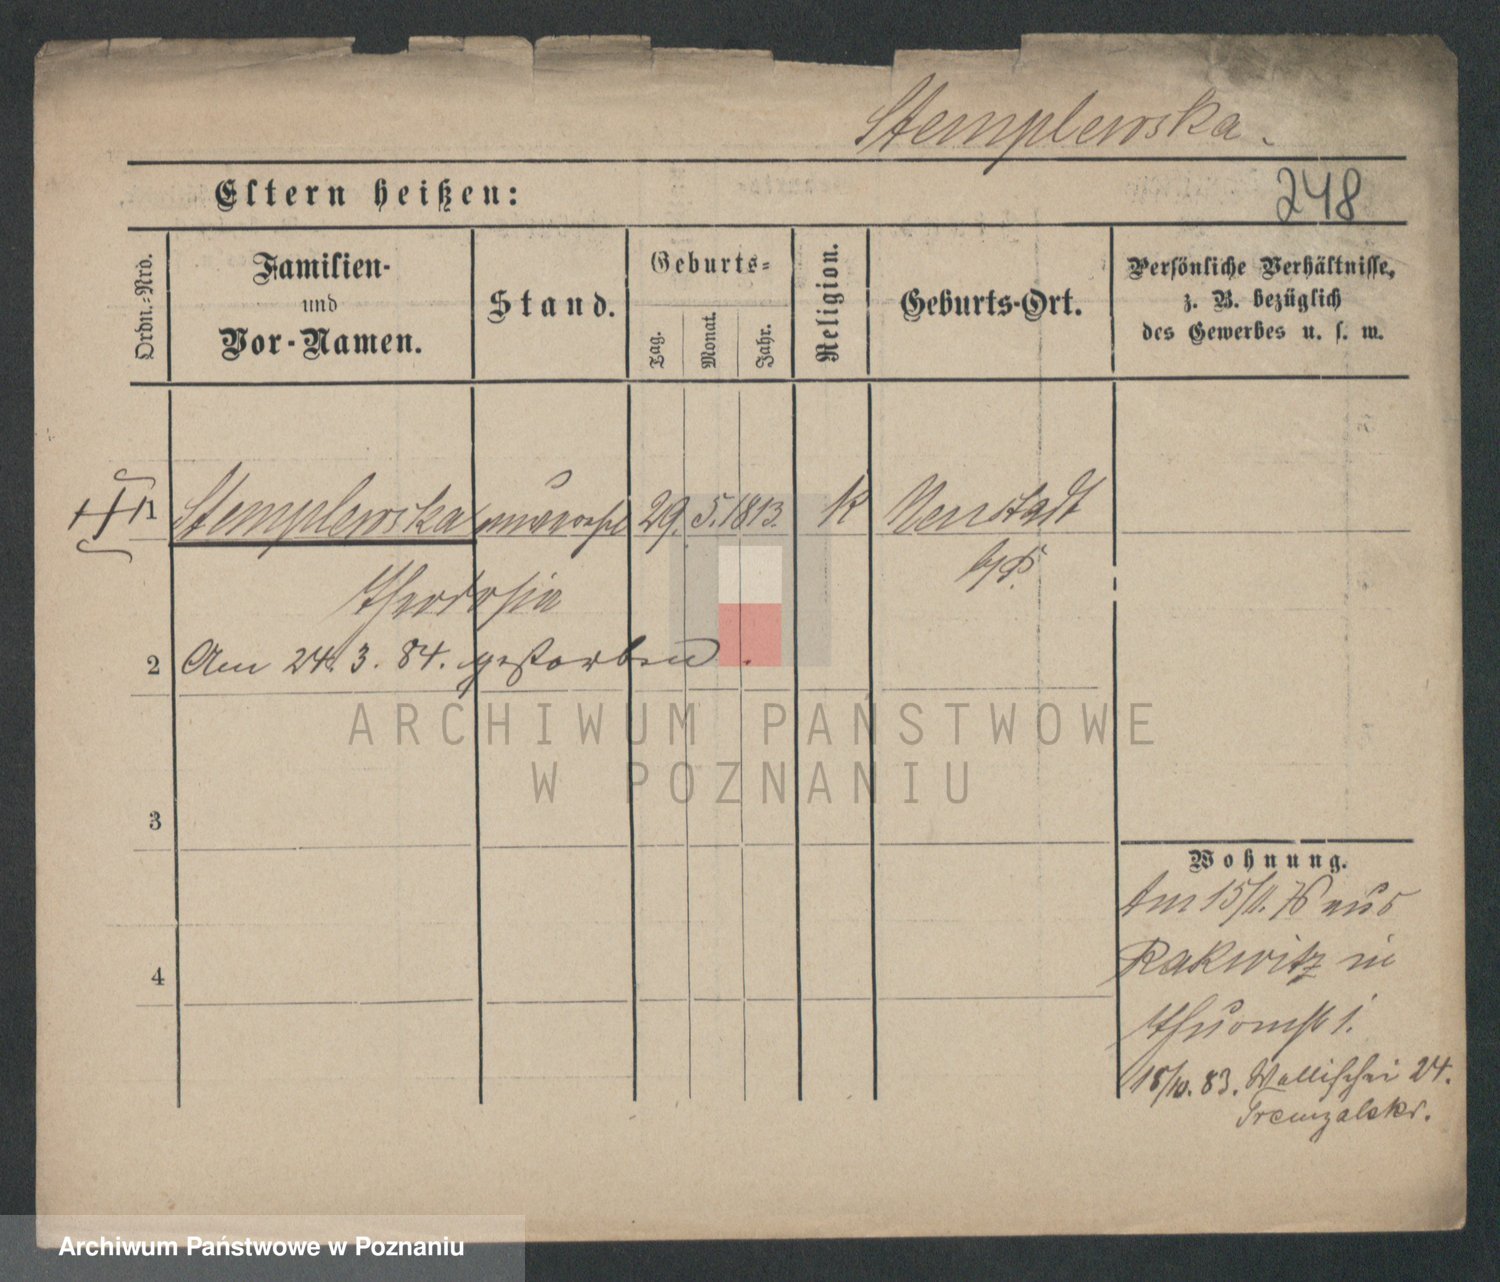 Stemplewska.
Eltern heißen:
248
Ordn.-Nro.
Familien-
und
Vor-Namen.
Stand.
Geburts-
Tag.
Monat.
Jahr.
Religion.
Geburts-Ort.
Persönliche Verhältnisse,
z. B. bezüglich
des Gewerbes u. s. w.
1 Stemplewska unverehl 29. 5. 1813. K Neustadt
b/P.
Theodosia
2 Am 24. 3. 84. gestorben.
ARCHIWUM PAŃSTWOWE
W POZNANIU
3
Wohnung.
Am 15/11. 76 aus
Rakwitz in
4
Thurmstr 1.
15/10. 83. Wallischei 24.
Archiwum Państwowe w Poznaniu